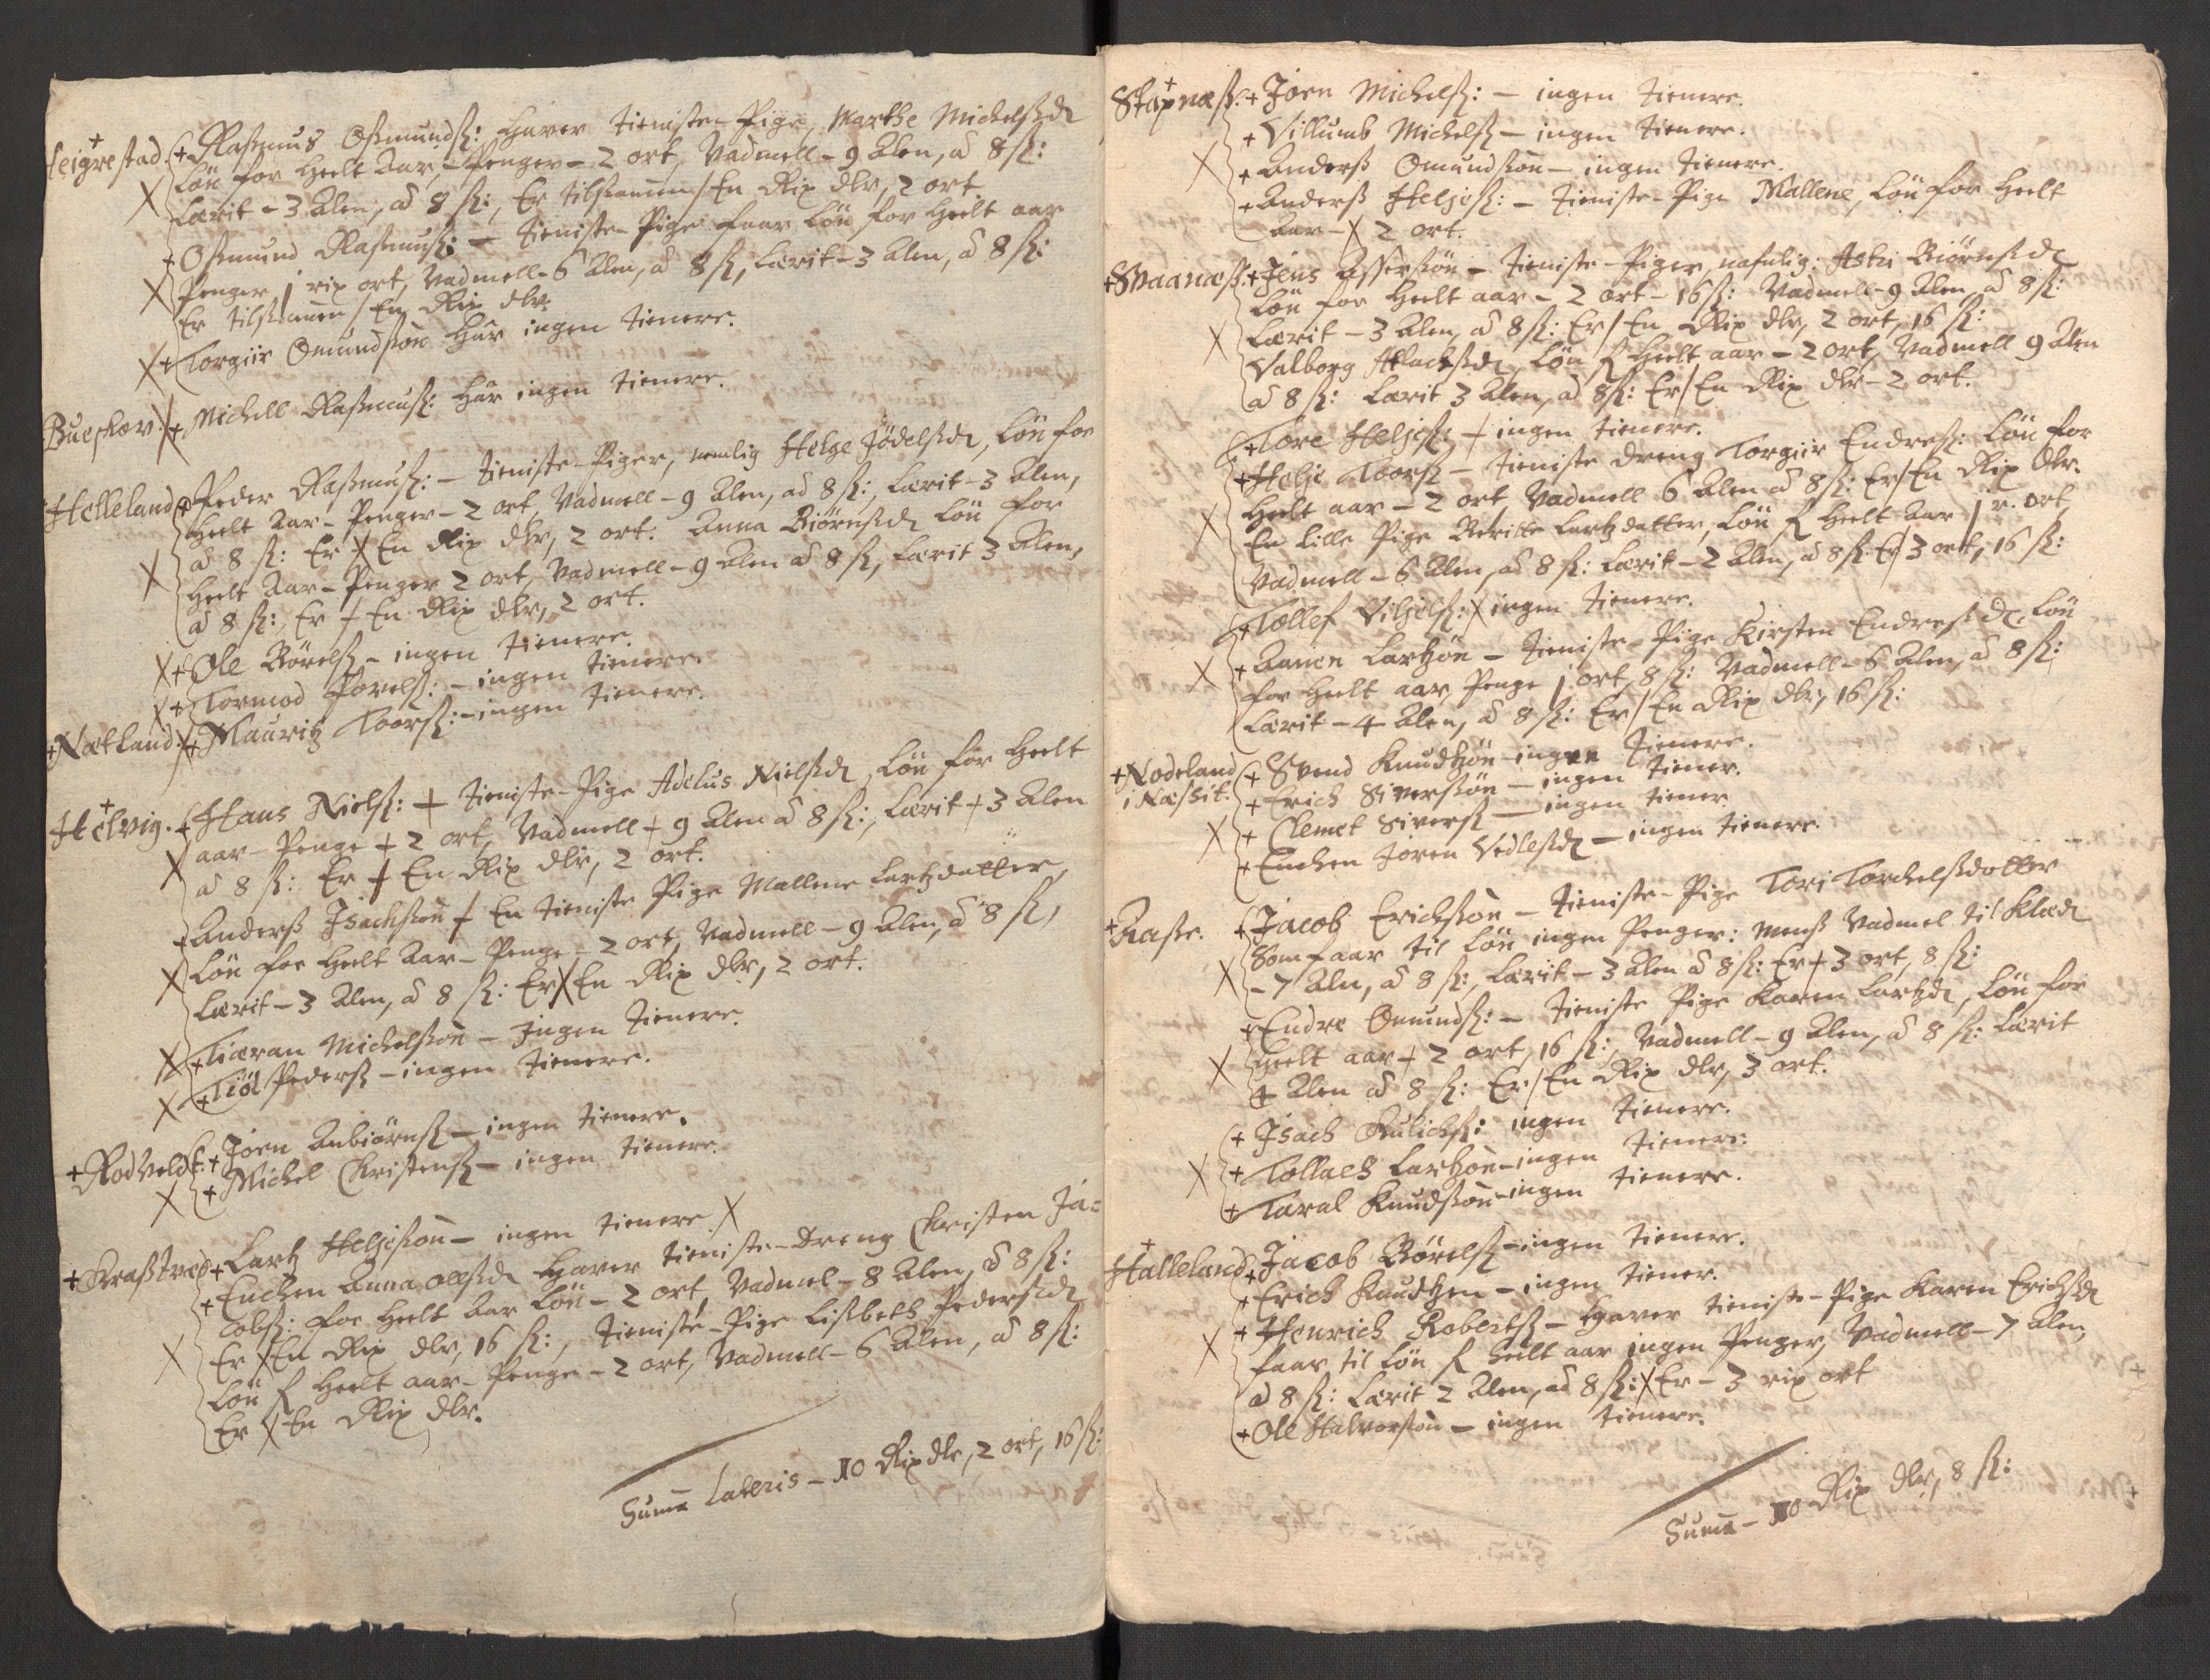 Leigrestad. + Rasmus Osmundß: Haver tieniste-Pige, Marthe Michelßdr
Løn for Heelt Aar, Penger - 2 ort, Vadmell - 9 Alen, ad 8 ß:
Lærit - 3 Alen, ad 8 ß:, Er tilsamen / En Rix dlr, 2 ort.
+ Osmund Rasmusß: - tieniste-Pige faar Løn for Heelt aar
Penger j rix ort, Vadmell - 6 Alen, ad 8 ß, Lærit - 3 Alen, ad 8 ß:
Er tilsamen / En Rix dlr.
X + Torgiir Omundsøn har ingen tienere.
Bueskov. + Michell Rasmusß: har ingen tienere.
Helleland + Peder Rasmusß: - tieniste-Piger, nemlig Helge Jødelßdr, Løn for
Heelt Aar - Penger - 2 ort, Vadmell - 9 Alen, ad 8 ß:, Lærit - 3 Alen,
ad 8 ß: Er X En Rix dlr, 2 ort. Anna Biørnßdr Løn for
Heelt Aar - Penger 2 ort, Vadmell - 9 Alen ad 8 ß, Lærit 3 Alen,
ad 8 ß:, Er + En Rix dlr, 2 ort.
X + Ole Børelß - ingen tienere.
X + Tormod Povelß: - ingen tienere
+ Nætland. X + Mauritz Toorß: - ingen tienere.
+ Helvig. + Hans Nielß: + tieniste-Pige Adelus Nielßdr Løn for Heelt
X aar - Penge + 2 ort, Vadmell + 9 Alen ad 8 ß:, Lærit + 3 Alen
ad 8 ß: Er + En Rix dlr, 2 ort.
+ Anderß Isachsøn + En tieniste Pige Mallene Lartzdatter,
X Løn for Heelt Aar - Penge - 2 ort, Vadmell - 9 Alen, ad 8 ß,
Lærit - 3 Alen, ad 8 ß: Er X En Rix dlr, 2 ort.
X + Tiæran Michelsøn - Ingen tienere.
X + Tiøl Pederß - ingen tienere.
+ Rodveldt. + Joen Anbiørnß - ingen tienere.
X + Michel Christenß - ingen tienere.
+ Kraßtved + Lartz Heljesøn - ingen tienere X
+ Enchen Anna Olleßdr Haver tieniste-Dreng Christen Ja=
cobß: for Heelt Aar Løn - 2 ort, Vadmel - 8 Alen, ad 8 ß:
X Er X En Rix dlr, 16 ß:, tieniste-Pige Lisbeth Pederßdr
Løn f Heelt aar - Penge - 2 ort, Vadmell - 6 Alen, ad 8 ß:
Er X En Rix dlr.
Suma Lateris - 10 Rixdlr, 2 ort, 16 ß:
Stapnæß. + Joen Michelß: - ingen tienere.
+ Villumb Michelß - ingen tienere.
X + Anderß Omundsøn - ingen tienere.
+ Anderß Heljeß: - tieniste-Pige Mallene, Løn for Heelt
Aar - X 2 ort.
+ Svaanæß. + Jens Assersøn - tieniste-Piger, nafnlig: Astri Biørnßdr
Løn for Heelt aar - 2 ort - 16 ß: Vadmell - 9 Alen ad 8 ß:
X Lærit - 3 Alen, ad 8 ß: Er / En Rix dlr, 2 ort, 16 ß:
Valborg Atlachßdr, Løn f Heelt aar - 2 ort, Vadmell 9 Alen
ad 8 ß: Lærit 3 Alen, ad 8 ß: Er / En Rix dlr - 2 ort.
+ Tore Heljeß: + ingen tienere.
+ Helje Toorß - tieniste dreng Torgiir Endreß: Løn for
Heelt aar - 2 ort, Vadmell 6 Alen ad 8 ß: Er / En Rix dlr.
X En Lille Pige Beritte Lartzdatter, Løn f Heelt Aar j r. ort,
Vadmell - 6 Alen, ad 8 ß: Lærit - 2 Alen, ad 8 ß: Er 3 ort, 16 ß:
+ Tollef Viljelß: X ingen tienere.
X + Aanen Lartzøn - tieniste-Pige Kirsten Endreßdr, Løn
for Heelt aar, Penge j ort, 8 ß: Vadmell - 6 Alen, ad 8 ß:
Lærit - 4 Alen, ad 8 ß: Er / En Rix dlr, 16 ß:
+ Nodeland + Svend Knudtzøn - ingen tienere.
i Næssit. + Erich Siversøn - ingen tiener.
X + Clemet Siverß - ingen tiener
+ Enchen Joren Vedleßdr - ingen tienere.
+ Raße. + Jacob Erichsøn - tieniste-Pige Tori Torchelßdotter
Som faar til Løn ingen Penger: menß Vadmel til Klæder
X - 7 Aln, ad 8 ß:, Lærit - 3 Alen ad 8 ß: Er + 3 ort, 8 ß:
+ Endre Omundß: - tieniste Pige Karen Lartzdr, Løn for
X Heelt aar + 2 ort, 16 ß:, Vadmell - 9 Alen, ad 8 ß: Lærit
4 Alen ad 8 ß: Er / En Rix dlr, 3 ort.
+ Isach Aulichß: ingen tienere.
X + Tollach Lartzøn - ingen tienere.
+ Taral Knudsøn - ingen tienere.
+ Halleland + Jacob Børelß - ingen tienere.
+ Erich Knudtzen - ingen tiener.
X + Henrich Robertß - Haver tieniste-Pige Karen Erichßdr
faar til Løn f heilt aar ingen Penger, Vadmell - 7 Alen,
ad 8 ß: Lærit 2 Alen, ad 8 ß: X Er - 3 rix ort
+ Ole Halvorsøn - ingen tienere.
Suma - 10 Rix dlr, 8 ß: